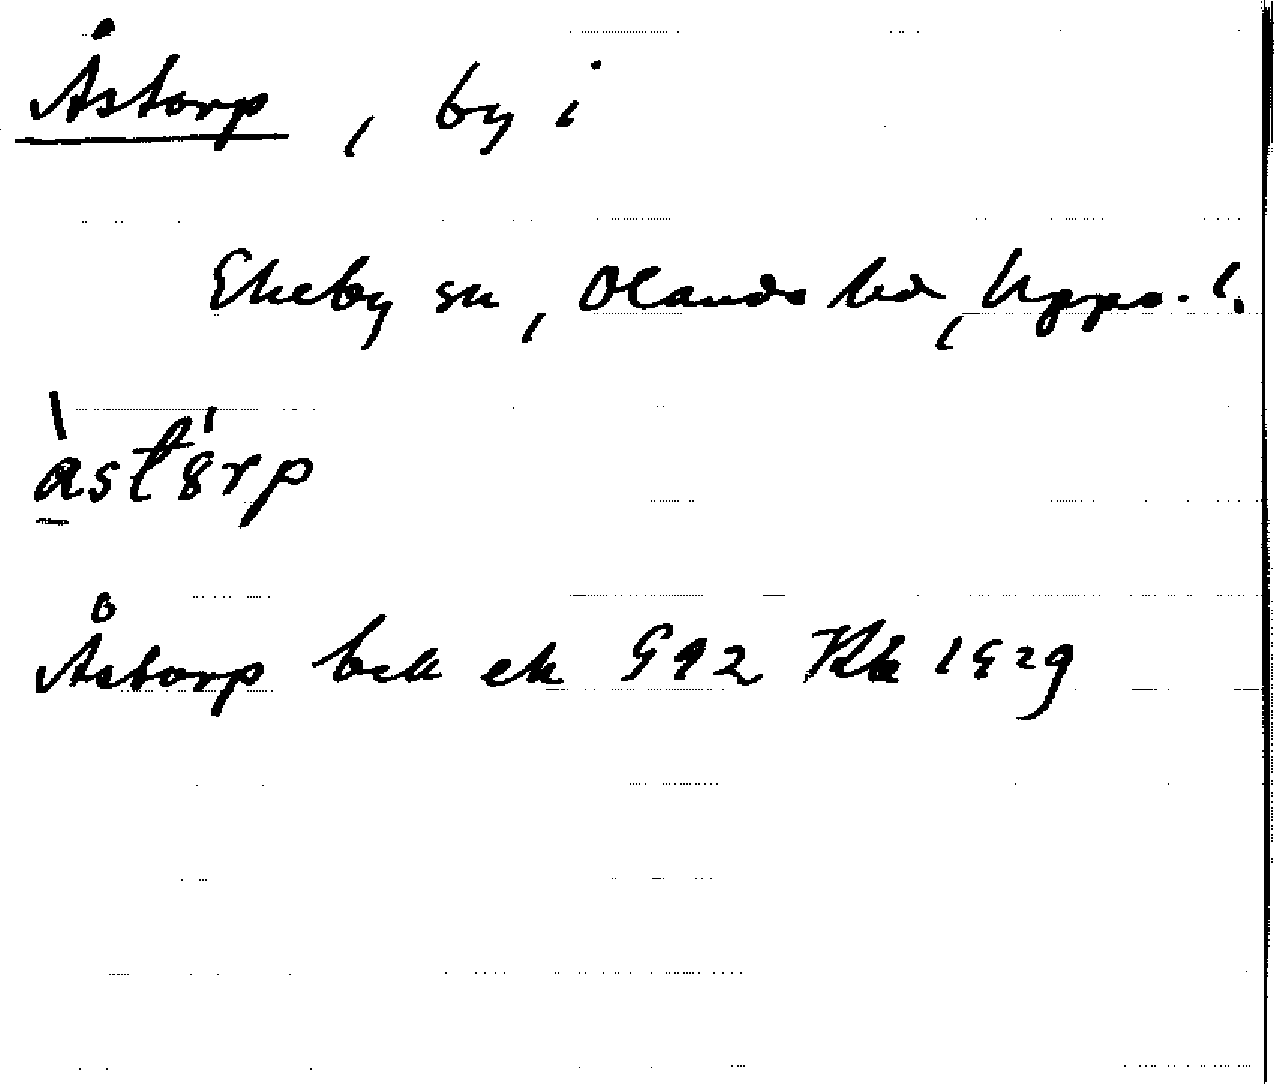 Åstorp, by i
Ekeby sn, Olands hd, Upps. l.
àsts̍rp
Åstorp bek ek 992 Kk 1929